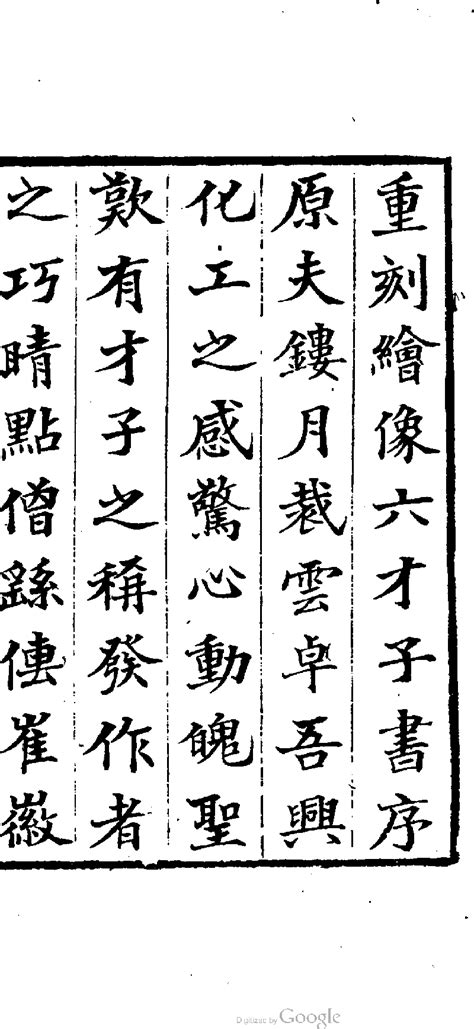 重刻繪像六才子書序
原夫鏤月裁雲卓吾興
化工之感驚心動魄聖
歎有才子之稱發作者
之巧睛點僧繇傳崔徽
Digitized by Google